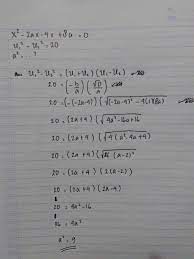 x² - 2ax - 4x + 8a = 0
U₁² - U₂² = 20
a² = ... ?
U₁² - U₂² = (U₁ + U₂) (U₁ - U₂)
20 = (-b/a) (√D/a)
20 = (-(-2a-4)) (√(-2a-4)² - 4(1)(8a))
20 = (2a + 4) (√4a² - 16a + 16
20 = (2a + 4) (√4(a² - 4a + 4)
20 = (2a + 4) (√4 (a - 2)²
20 = (2a + 4) (2(a - 2)
20 = (2a + 4) (2a - 4)
20 = 4a² - 16
36 = 4a²
a² = 9